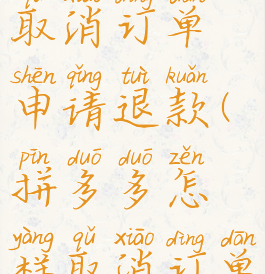 qǔ xiāo dìng dān
取消订单
shēn qǐng tuì kuǎn
申请退款(
pīn duō duō zěn
拼多多怎
yàng qǔ xiāo dìng dān
样取消订单